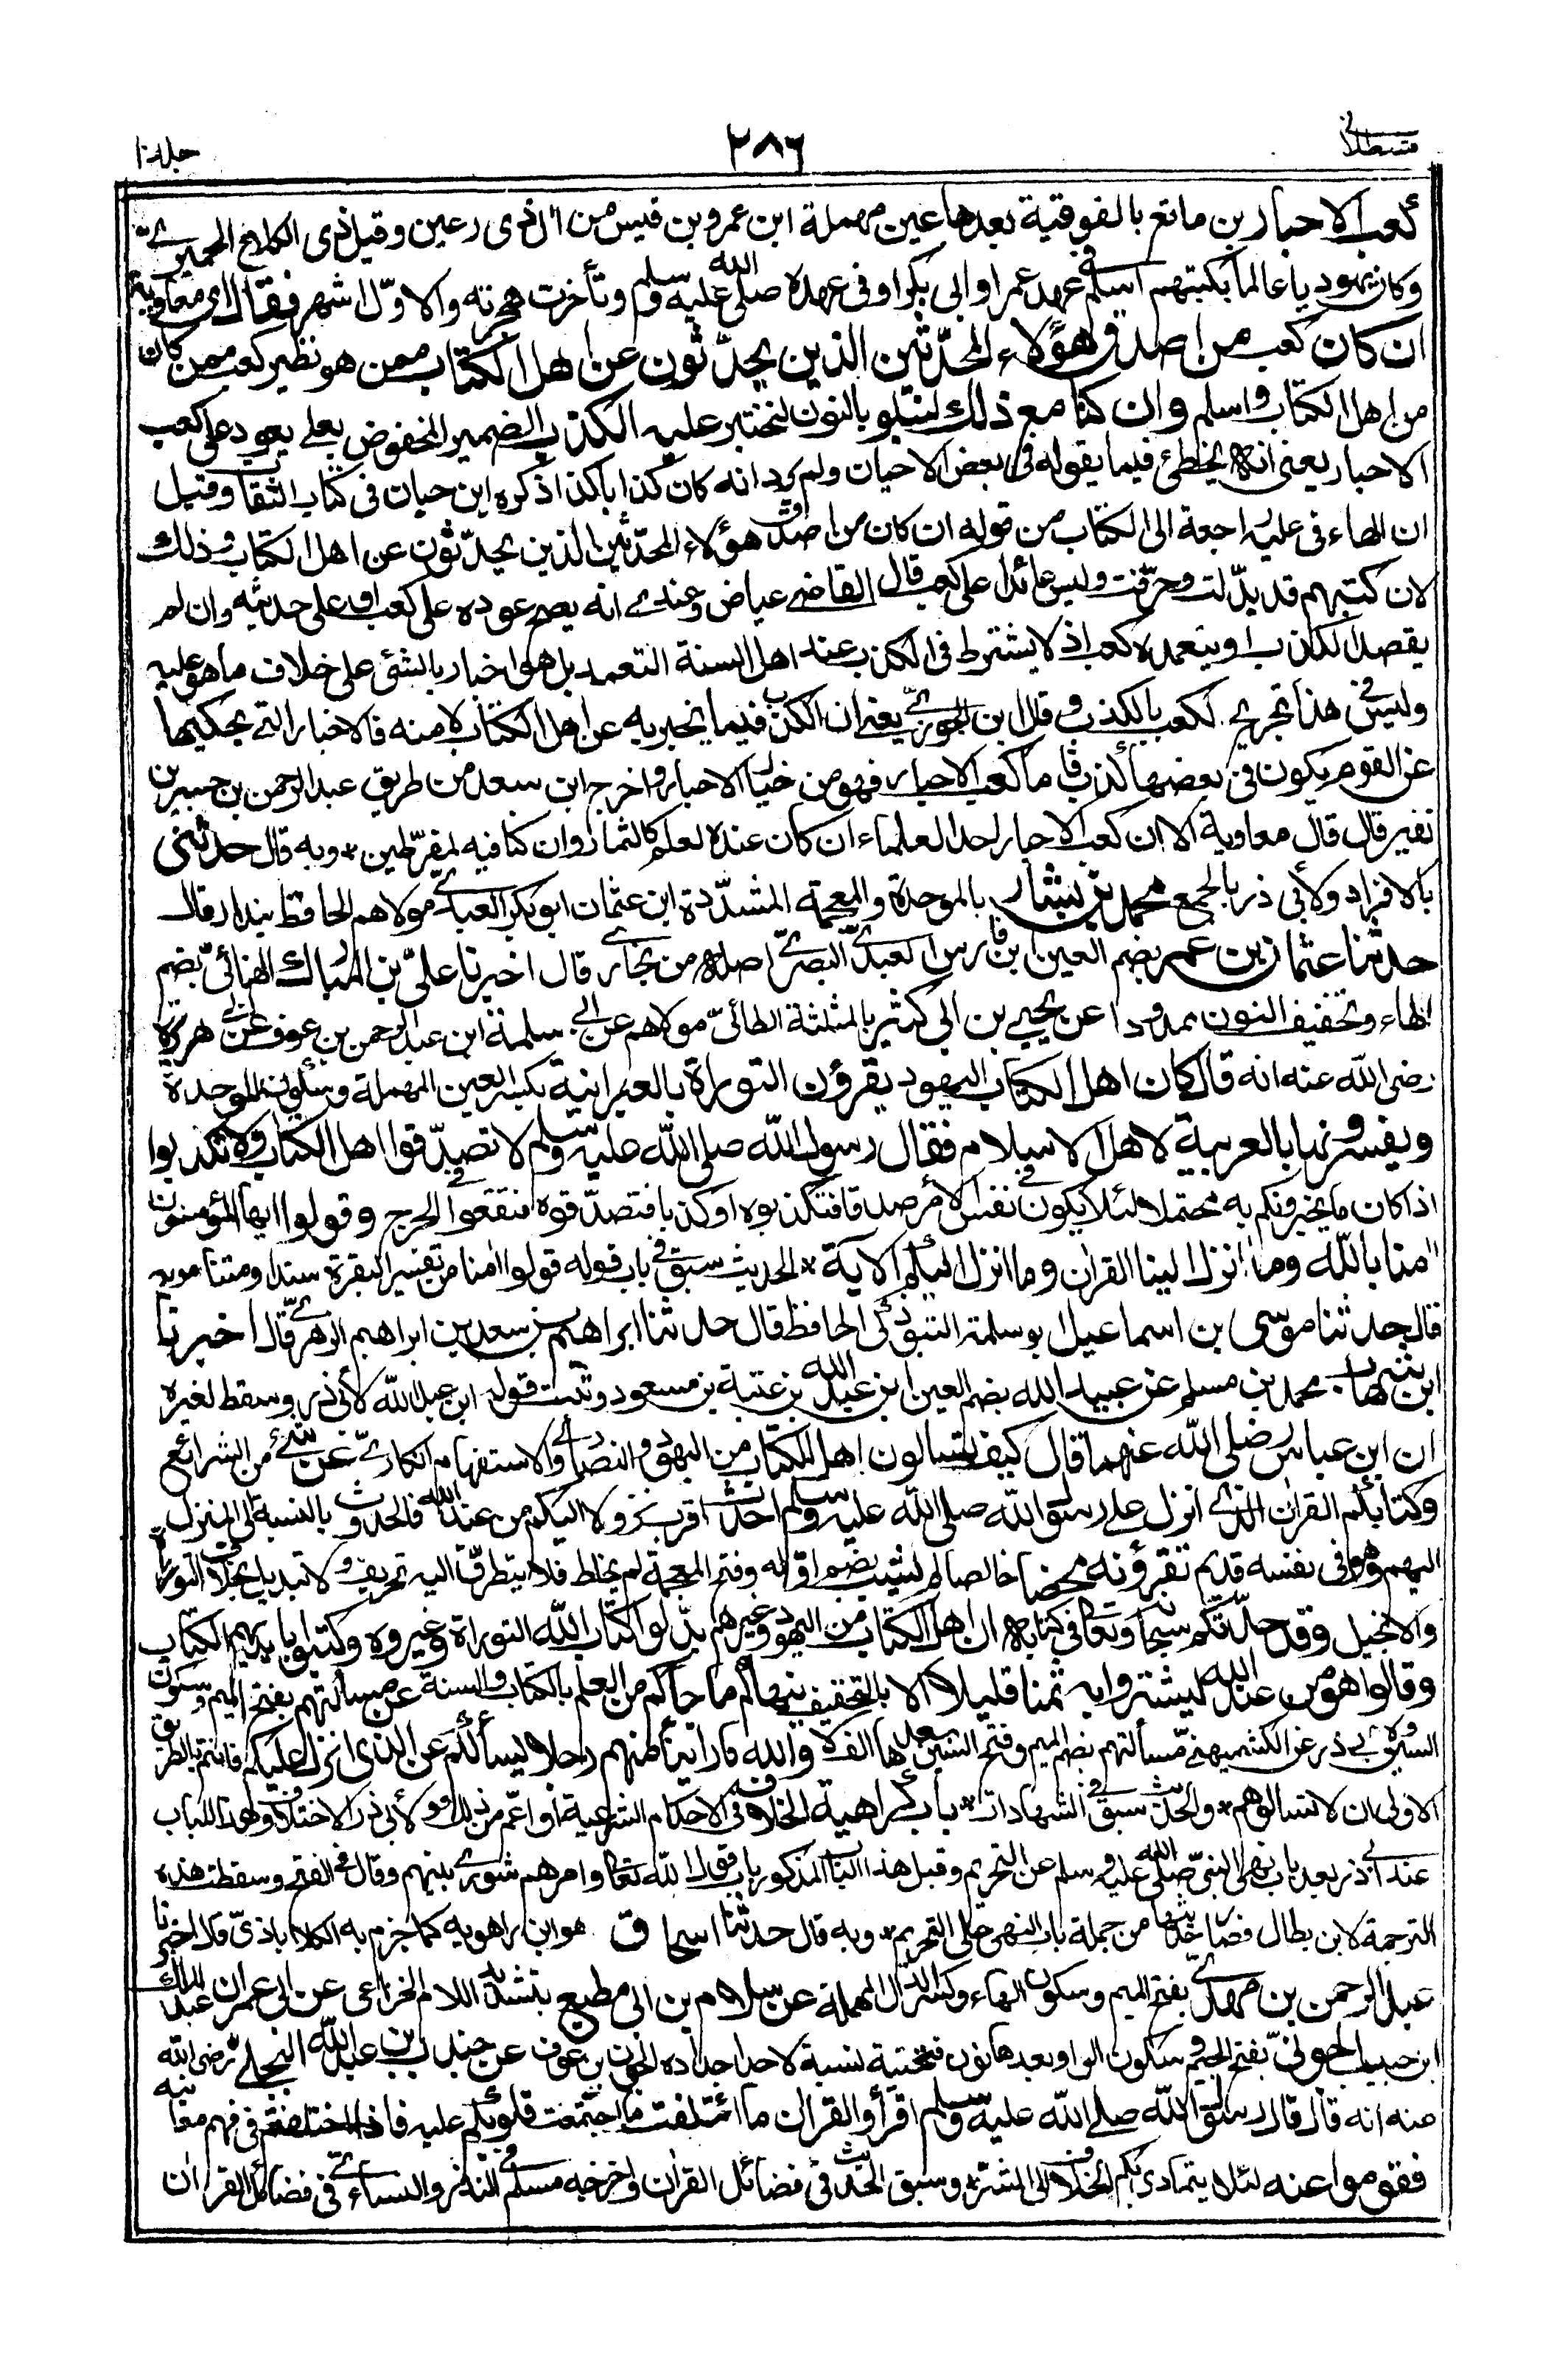 قسطلانى
٢٨٦
جلد ١٠
كعب الاحبار بن ماتع بالفوقية بعدها عين مهملة ابن عمرو بن قيس من اٰل ذى رعين وقيل ذى الكلاع الحميرىّ
وكان يهوديا عالما بكتبهم اسلم فى عهد عمر او ابى بكر او فى عهده صلى الله عليه وسلم وتأخرت هجرته والاوّل اشهر فقال اى معاوية
ان كان كعب من اصدق هؤلاء المحدّثين الذين يحدّثون عن اهل الكتاب ممن هو نظير كعب ممن كان
من اهل الكتاب واسلم وان كنا مع ذلك لنبلو بالنون لنختبر عليه الكذب الضمير المخفوض بعلى يعود على كعب
الاحبار يعنى انه يخطئ فيما يقوله فى بعض الاحيان ولم يرد انه كان كذابا كذا ذكره ابن حبان فى كتاب الثقات وقيل
ان الهاء فى عليه راجعة الى الكتاب من قوله ان كان من اصدق هؤلاء المحدّثين الذين يحدّثون عن اهل الكتاب وذلك
لان كتبهم قد بدّلت وحرّفت وليس عائدا على كعب قال القاضى عياض وعندى انه يصح عوده على كعب او على حديثه وان لم
يقصد الكذب او يتعمده كعب اذ لا يشترط فى الكذب عند اهل السنة التعمد بل هو اخبار بالشئ على خلاف ما هو عليه
وليس فى هذا تجريح لكعب بالكذب وقال ابن الجوزىّ يعنى ان الكذب فيما يخبر به عن اهل الكتاب لا منه فالاخبار التى يحكيها
عن القوم يكون فى بعضها كذب فاما كعب الاحبار فهو من خيار الاحبار واخرج ابن سعد من طريق عبد الرحمن بن جبير بن
نفير قال قال معاوية الا ان كعب الاحبار احد العلماء ان كان عنده لعلم كالثمار وان كنا فيه لمفرّطين * وبه قال حدثنى
بالافراد ولأبى ذر بالجمع محمد بن بشار بالموحدة والمعجمة المشدّدة ابن عثمان ابو بكر العبدىّ مولاهم الحافظ بندار قال
حدثنا عثمان بن عمر بضم العين ابن فارس العبدىّ البصرىّ اصله من بخارى قال اخبرنا علىّ بن المبارك الهنائىّ بضم
الهاء وتخفيف النون ممدودا عن يحيى بن ابى كثير بالمثلثة الطائىّ مولاهم عن ابى سلمة ابن عبد الرحمن بن عوف عن ابى هريرة
رضى الله عنه انه قال كان اهل الكتاب اليهود يقرؤن التوراة بالعبرانية بكسر العين المهملة وسكون الموحدة
ويفسرونها بالعربية لاهل الاسلام فقال رسول الله صلى الله عليه وسلم لا تصدّقوا اهل الكتاب ولا تكذبوا
اذا كان ما يخبرونكم به محتملا لئلا يكون فى نفس الامر صدقا فتكذبوه او كذبا فتصدّقوه فتقعوا فى الحرج وقولوا ايها المؤمنون
اٰمنا بالله وما انزل الينا القراٰن وما انزل اليكم الاٰية * الحديث سبق فى باب قوله قولوا اٰمنا من تفسير البقرة سندا ومتنا * وبه
قال حدثنا موسى بن اسماعيل ابو سلمة التبوذكى الحافظ قال حدثنا ابراهيم بن سعد بن ابراهيم الزهرىّ قال اخبرنا
ابن شهاب محمد بن مسلم عن عبيد الله بضم العين ابن عبد الله بن عتبة بن مسعود وثبت قوله ابن عبد الله لأبى ذر وسقط لغيره
ان ابن عباس رضى الله عنهما قال كيف تسالون اهل الكتاب من اليهود والنصارى والاستفهام انكارىّ عن شئ من الشرائع
وكتابكم القراٰن الذى انزل على رسول الله صلى الله عليه وسلم احدث اقرب نزولا اليكم من عند الله فالحدوث بالنسبة الى المنزل
اليهم وهو فى نفسه قديم تقرؤنه محضا خالصا لم يشب بضم اوّله وفتح المعجمة لم يخلط فلا يتطرّق اليه تحريف ولا تبديل بخلاف التوراة
والانجيل وقد حدّثكم سبحانه وتعالى فى كتابه ان اهل الكتاب من اليهود وغيرهم بدّلوا كتاب الله التوراة وغيروه وكتبوا بايديهم الكتاب
وقالوا هو من عند الله ليشتروا به ثمنا قليلا الا بالتخفيف ينهاكم ما جاءكم من العلم بالكتاب والسنة عن مسألتهم بفتح الميم وسكون
السين ولأبى ذر عن الكشميهنى مساءلتهم بضم الميم وفتح السين بعدها الف لا والله ما رأينا منهم رجلا يسألكم عن الذى انزل عليكم فانتم بالطريق
الاولى ان لا تسالوهم * والحديث سبق فى الشهادات * باب كراهية الخلاف فى الاحكام الشرعية او اعّم من ذلك ولأبى ذر الاختلاف وهذا الباب
عند ابى ذر بعد باب نهى النبىّ صلى الله عليه وسلم عن التحريم وقبل هذا الباب المذكور باب قول الله تعالى وامرهم شورى بينهم وقال فى الفتح وسقطت هذه
الترجمة لابن بطال فصار حديثها من جملة باب النهى على التحريم * وبه قال حدثنا اسحاق هو ابن راهويه كما جزم به الكلاباذىّ قال اخبرنا
عبد الرحمن بن مهدى بفتح الميم وسكون الهاء وكسر الدال المهملة عن سلام بن ابى مطيع بتشديد اللام الخزاعى عن ابى عمران عبد الملك
ابن حبيب الجونىّ بفتح الجيم وسكون الواو وبعدها نون فتحتية نسبة لاحد اجداده الجون بن عوف عن جندب بن عبد الله البجلىّ رضى الله
عنه انه قال قال رسول الله صلى الله عليه وسلم اقرأوا القراٰن ما ائتلفت ما اجتمعت قلوبكم عليه فاذا اختلفتم فى فهم معانيه
فقوموا عنه لئلا يتمادى بكم الخلاف الى الشرّ * وسبق الحديث فى فضائل القراٰن واخرجه مسلم فى النذر والنساءى فى فضائل القراٰن